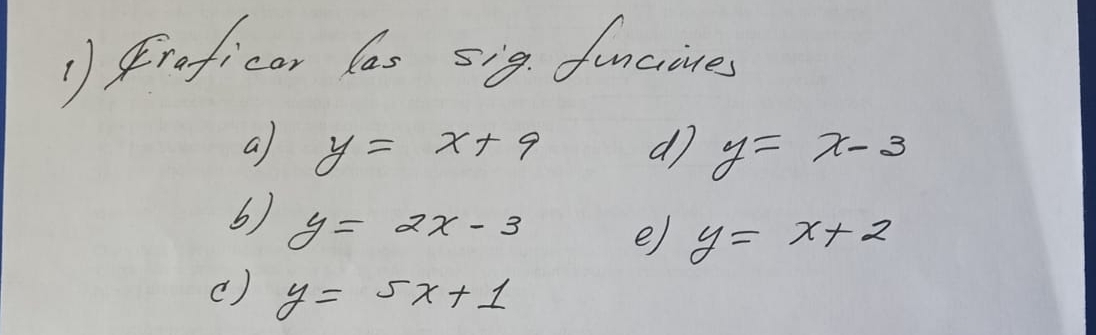 1) Graficar las sig. funciones
a) y = x + 9
b) y = 2x - 3
c) y = 5x + 1
d) y = x - 3
e) y = x + 2